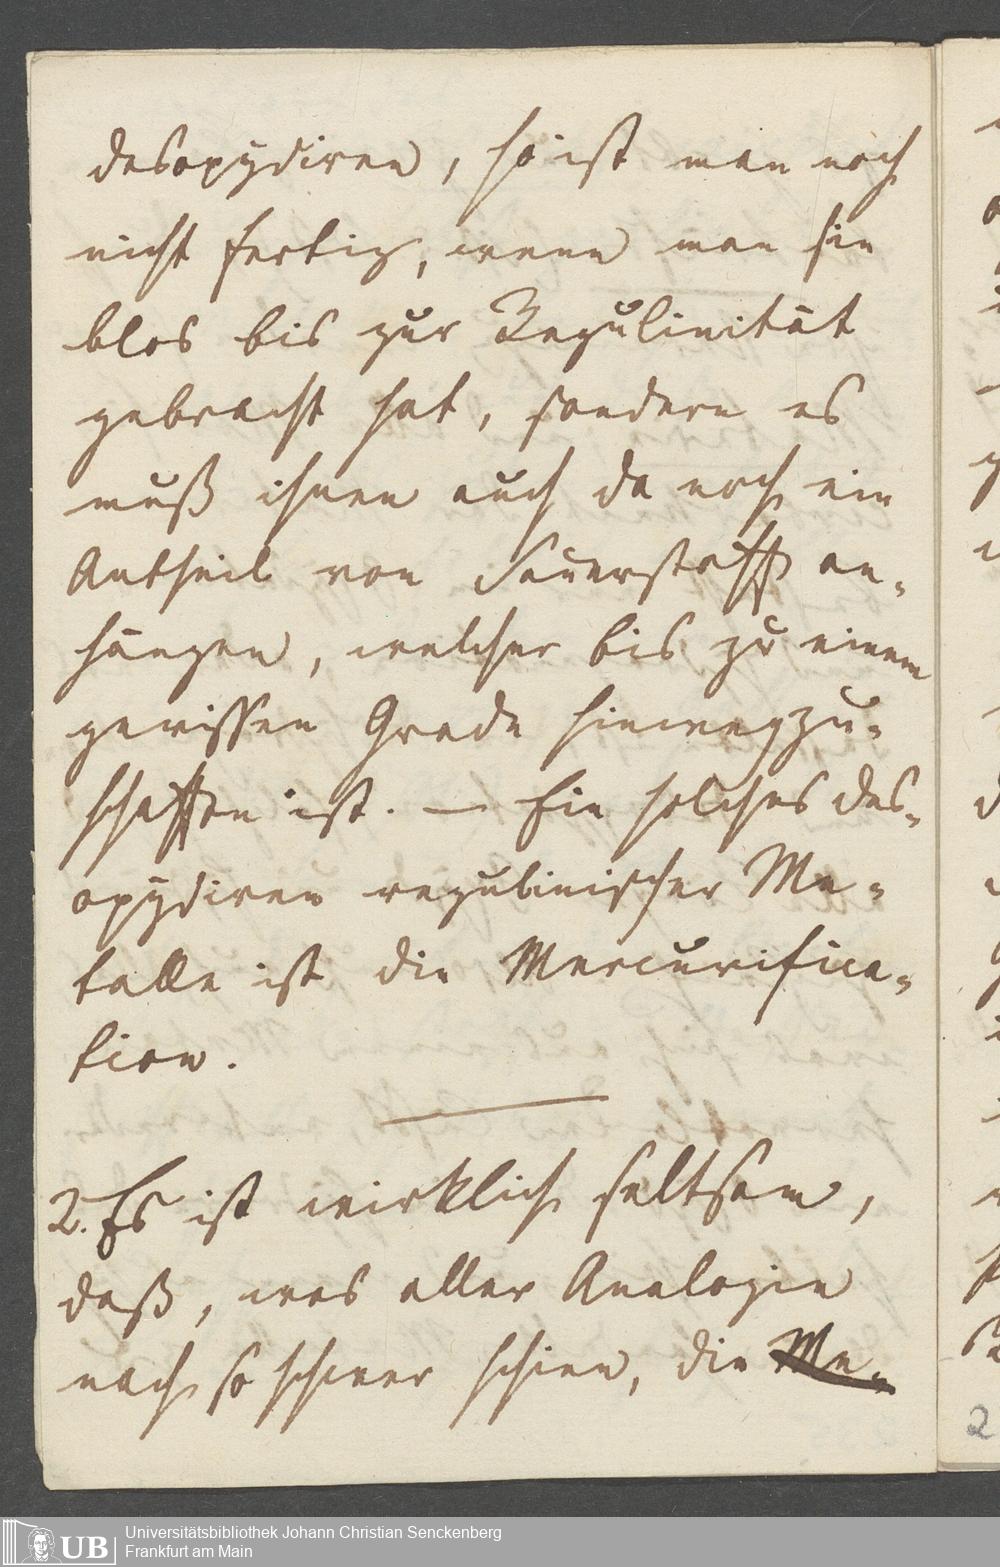 desoxydiren, so ist man noch
nicht fertig, wenn man sie
blos bis zur Regulinität
gebracht hat, sondern es
muß ihnen auch da noch ein
Antheil von Sauerstoff an-
hängen, welcher bis zu einem
gewissen Grade hinwegzu-
schaffen ist. — Ein solches des-
oxydiren regulinischer Me-
talle ist die Mercurifica-
tion.
2. Es ist wirklich seltsam,
daß, was aller Analogie
nach so schwer schien, die Me-
2
UB
Universitätsbibliothek Johann Christian Senckenberg
Frankfurt am Main